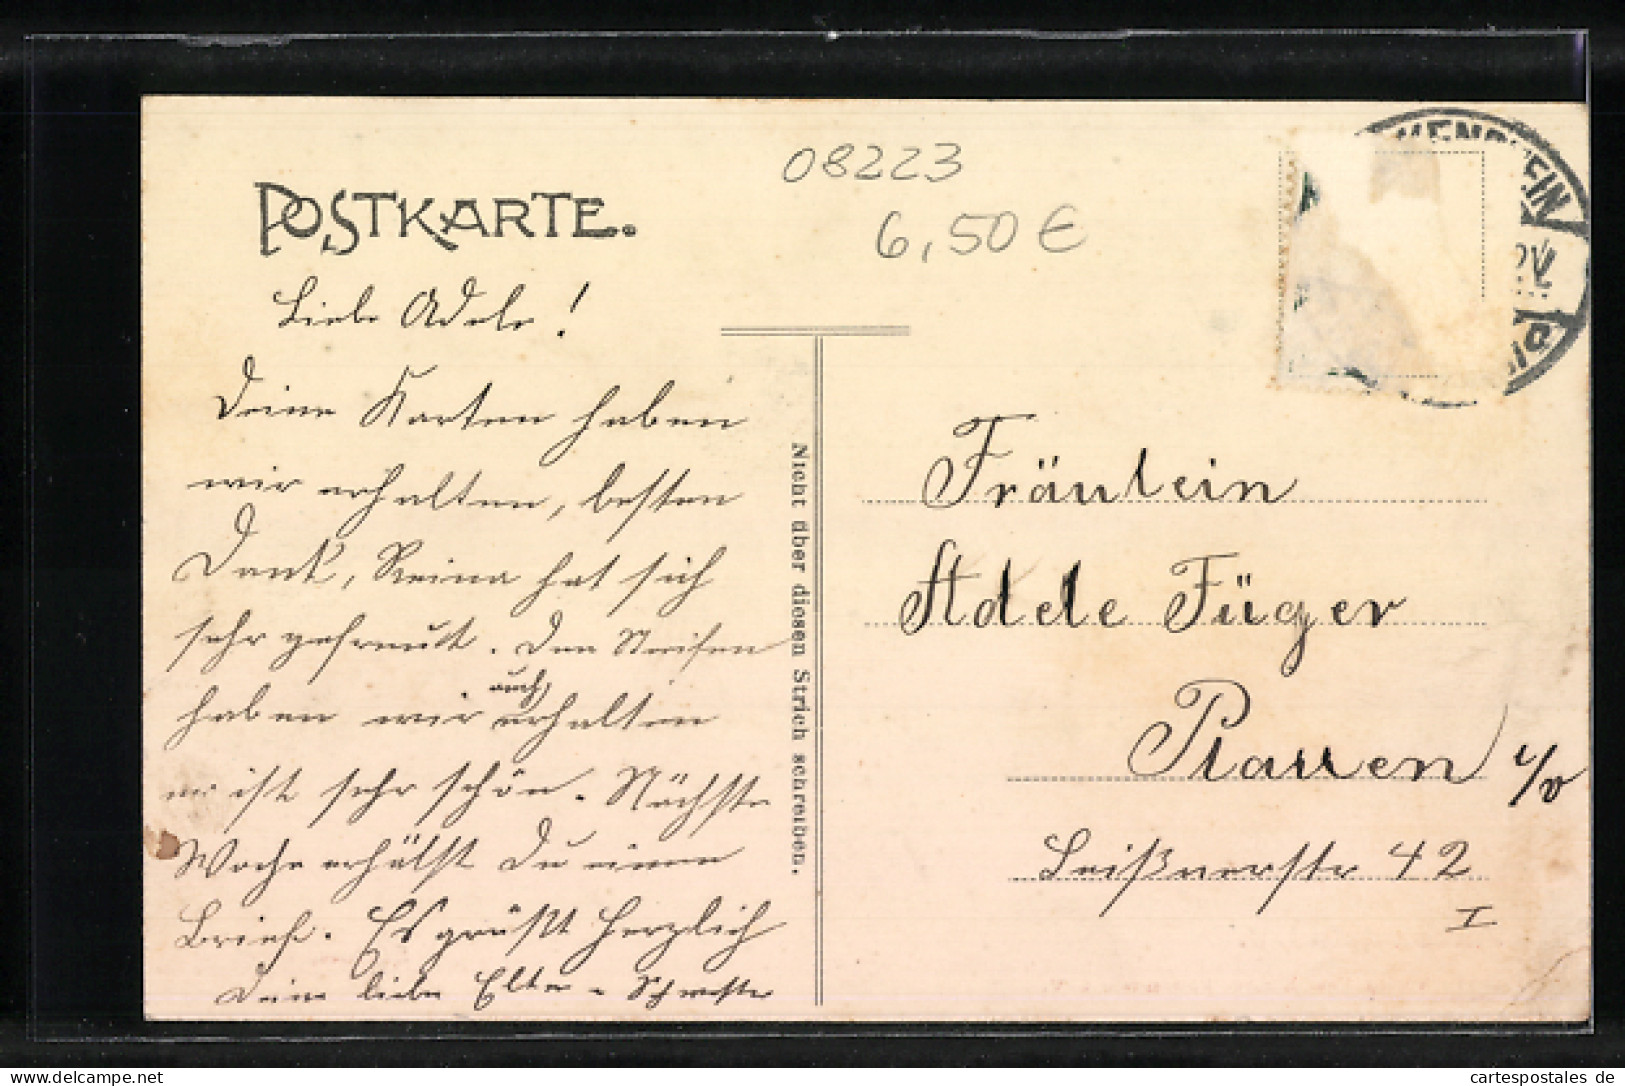 08223
6,50 €
POSTKARTE.
Liebe Adele!
Deine Karten haben
wir erhalten, besten
Dank, Reina hat sich
sehr gefreut. Den Streifen
haben wir auch erhalten
er ist sehr schön. Nächste
Woche erhälst Du einen
Brief. Es grüßt herzlich
Deine liebe Eltern u. Schwester
Nicht über diesen Strich schreiben.
Fräulein
Adele Füger
Plauen i/V
Leißnerstr 42
I
cartespostales de